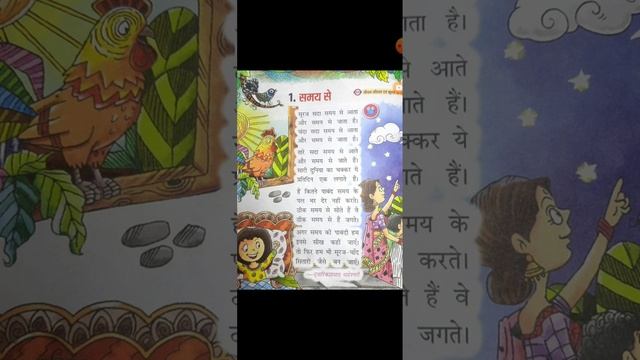 1. समय से
सूरज सदा समय से आता
और समय से जाता है।
चंदा सदा समय से आता
और समय से जाता है।
तारे सदा समय से आते
और समय से जाते हैं।
सारी दुनिया का चक्कर ये
प्रतिदिन एक लगाते हैं।
हैं कितने पाबंद समय के
पल भर देर नहीं करते।
ठीक समय से सोते हैं वे
ठीक समय से हैं जगते।
अगर समय की पाबंदी हम
इनसे सीख कहीं जाएँ।
तो फिर हम भी सूरज-चाँद
सितारों जैसे बन जाएँ।
गाता है।
आते
हैं।
चक्कर ये
हैं।
समय के
करते।
हैं वे
जगते।